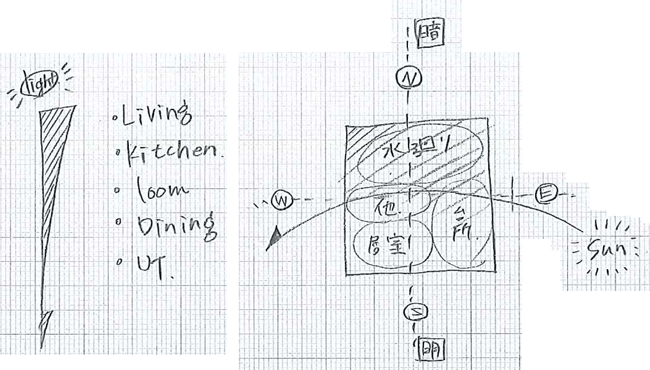 light
・Living
・kitchen.
・loom
・Dining
・UT.
暗
N
水廻り
W
E
他.
台所.
居室
Sun
S
明